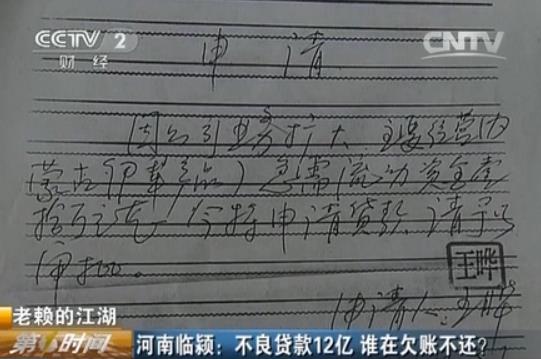 CCTV 2
财经
CNTV
申 请
因公司业务扩大，主要经营内
蒙古 急需流动资金壹
今特申请贷款，请予以
审批。
王晔
申请人：王晔
老赖的江湖
第一时间
河南临颍：不良贷款12亿 谁在欠账不还？